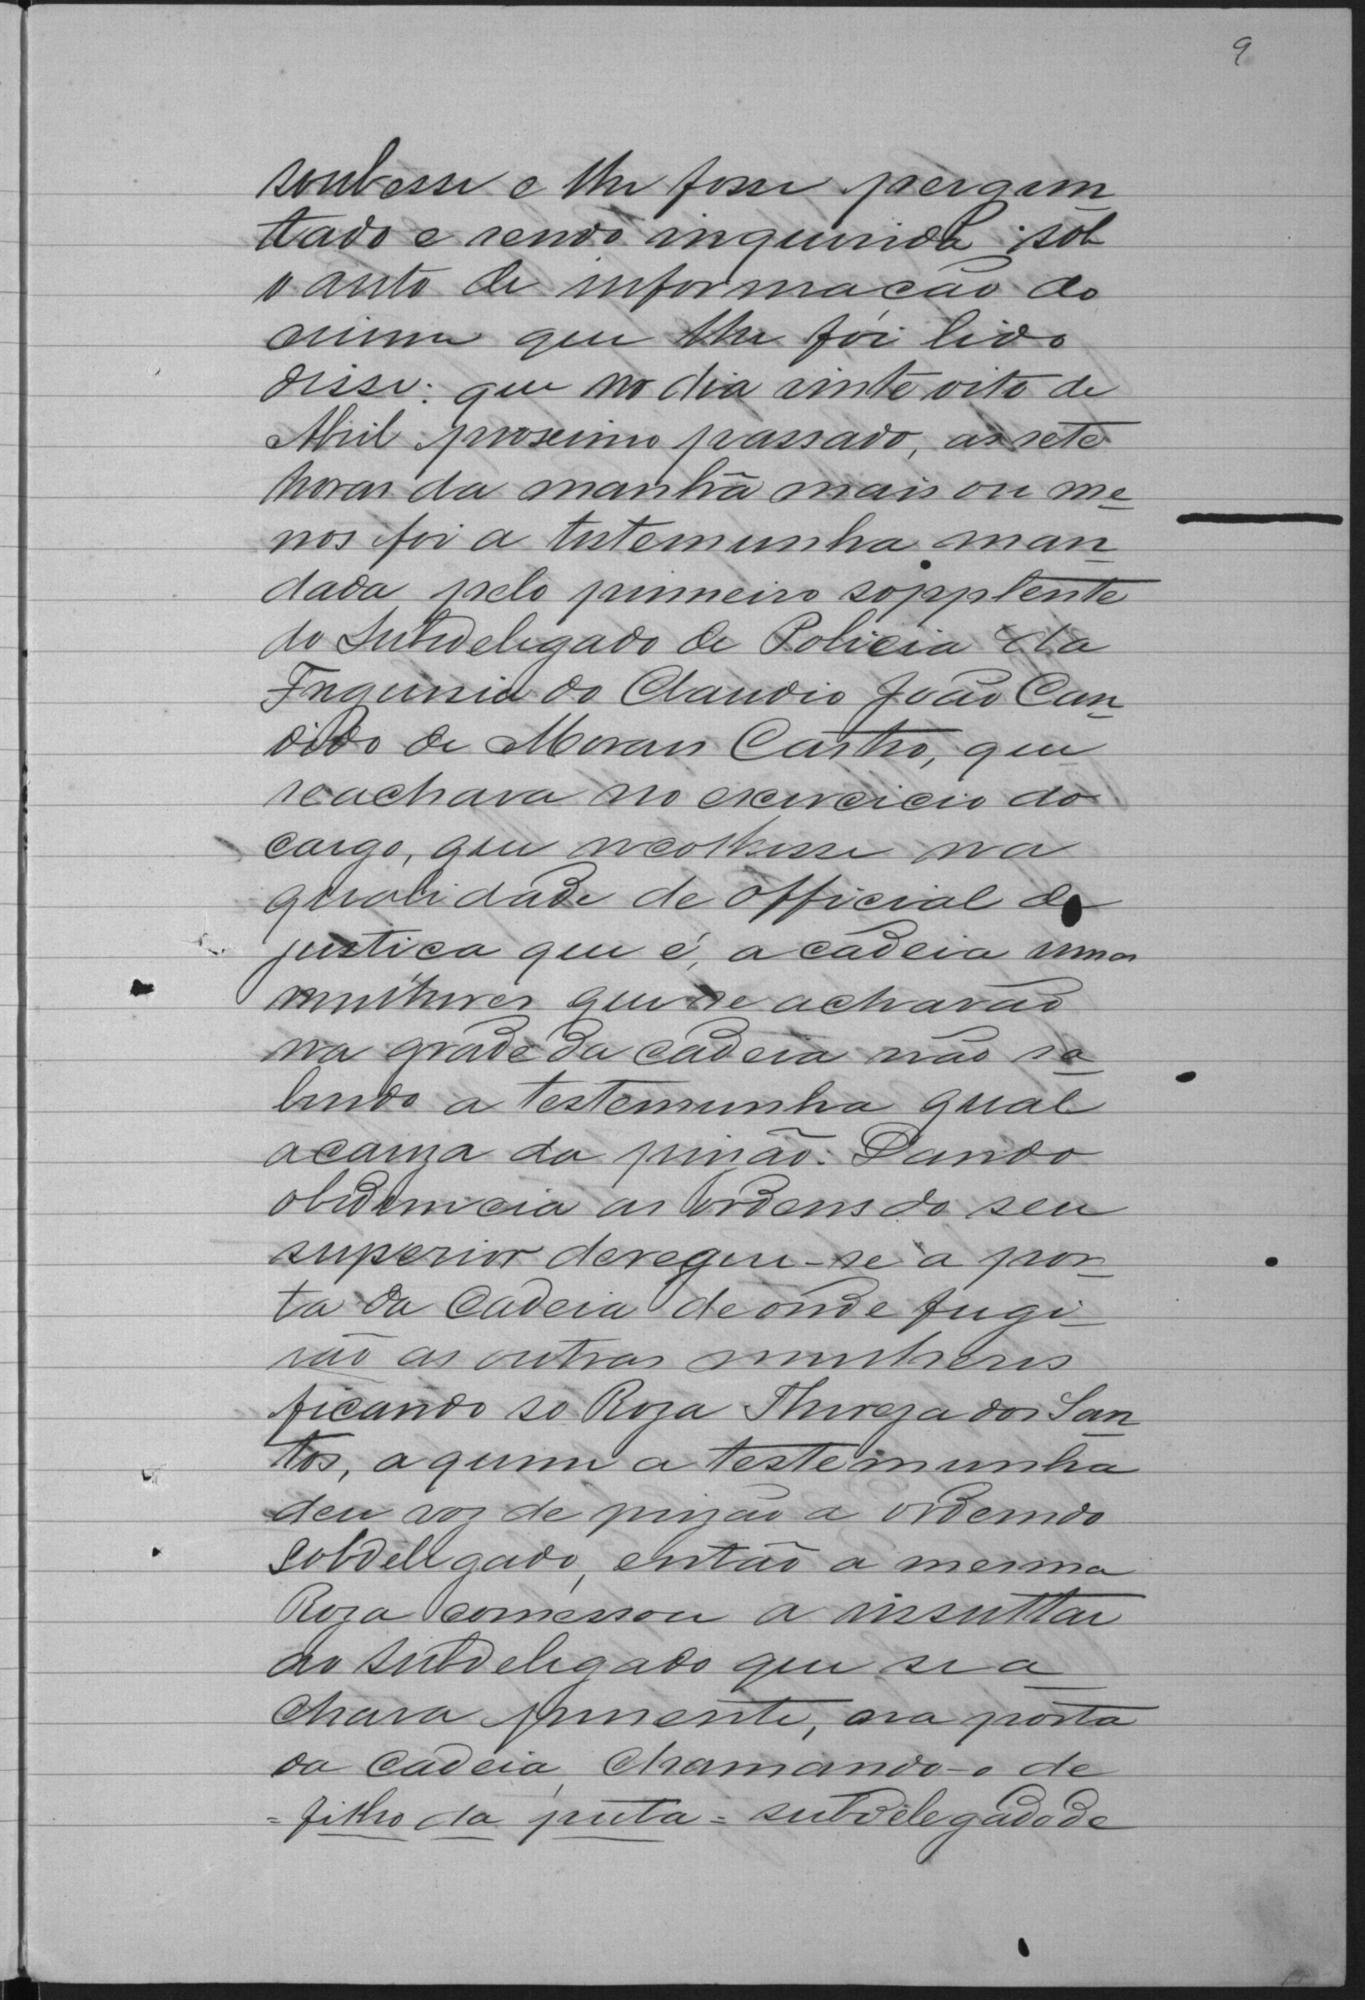 9
soubesse e lhe fosse pergun
tado e sendo inquirida sob
o auto de informacão do
crime que lhe foi lido
disse: que no dia vinte oito de
Abril proximo passado, as sete
horas da manhã mais ou me
nos foi a testemunha man
dada pelo primeiro sopplente
do Subdelegado de Policia da
Freguesia do Claudio João Can
dido de Moraes Castro, que
se achava no exercicio do
cargo, que recolhesse na
qualidade de official de
justica que é, a cadeia umas
mulheres que se achavão
na grade da cadeia não sa
bendo a testemunha qual
a cauza da prisão. Dando
obediencia as ordens do seu
superior deregeu-se a por
ta da Cadeia de onde fugi
rão as outras mulheres
ficando so Roza Thereza dos San
tos, a quem a testemunha
deu voz de prizão a ordem do
Sobdelegado, então a mesma
Roza comessou a insultar
ao Subdelegado que se a
chava presente, na porta
da cadeia, chamando-o de
= filho da puta = subdelegado de